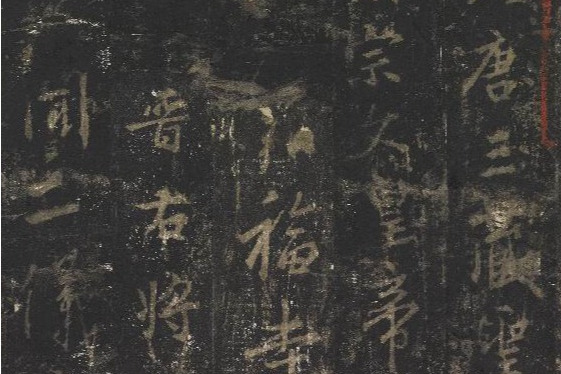 唐三藏聖
宗文皇帝
弘福寺
晉右將
聞二儀